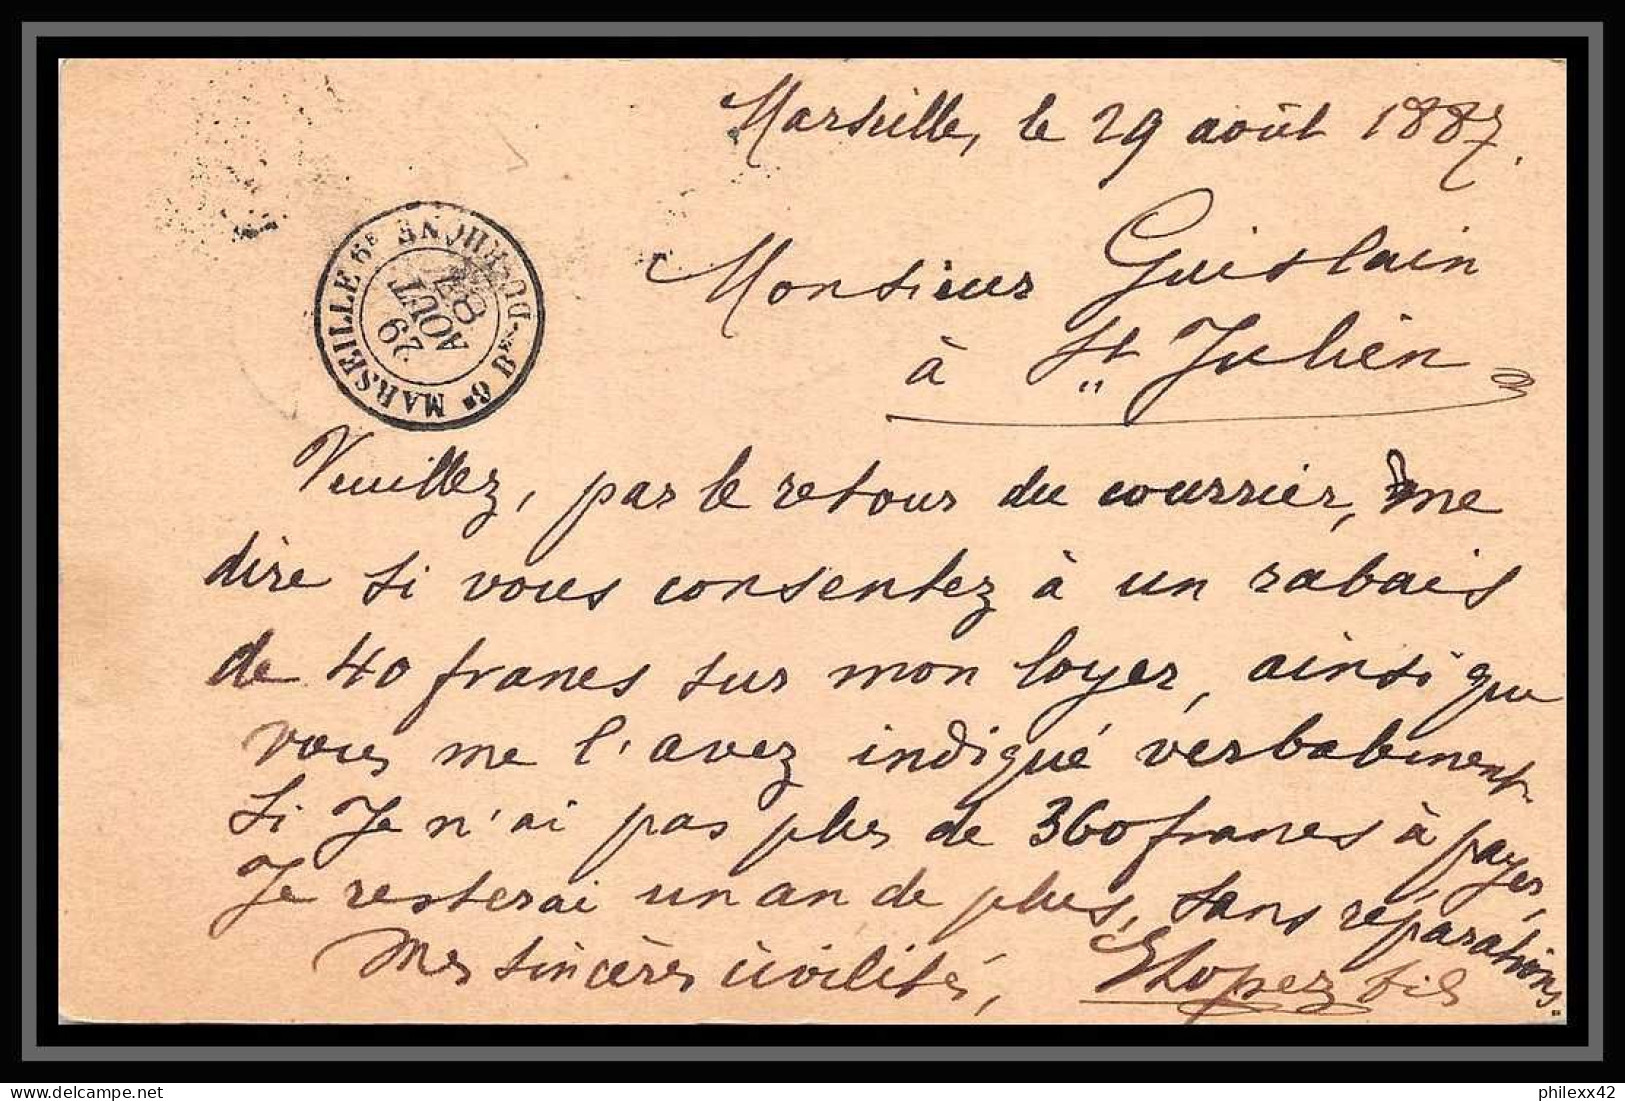 Marseille, le 29 août 1887.
Monsieur Guislain
à St Julien
MARSEILLE 6E Bes-DU-RHONE 6E
29
AOUT
87
Veuillez, par le retour du courrier, me
dire si vous consentez à un rabais
de 40 francs sur mon loyer, ainsi que
vous me l'avez indiqué verbabement.
Si Je n'ai pas plus de 360 francs à payer,
Je resterai un an de plus, sans réparations.
Mes sincères civilités, ELopez fils
philexx42